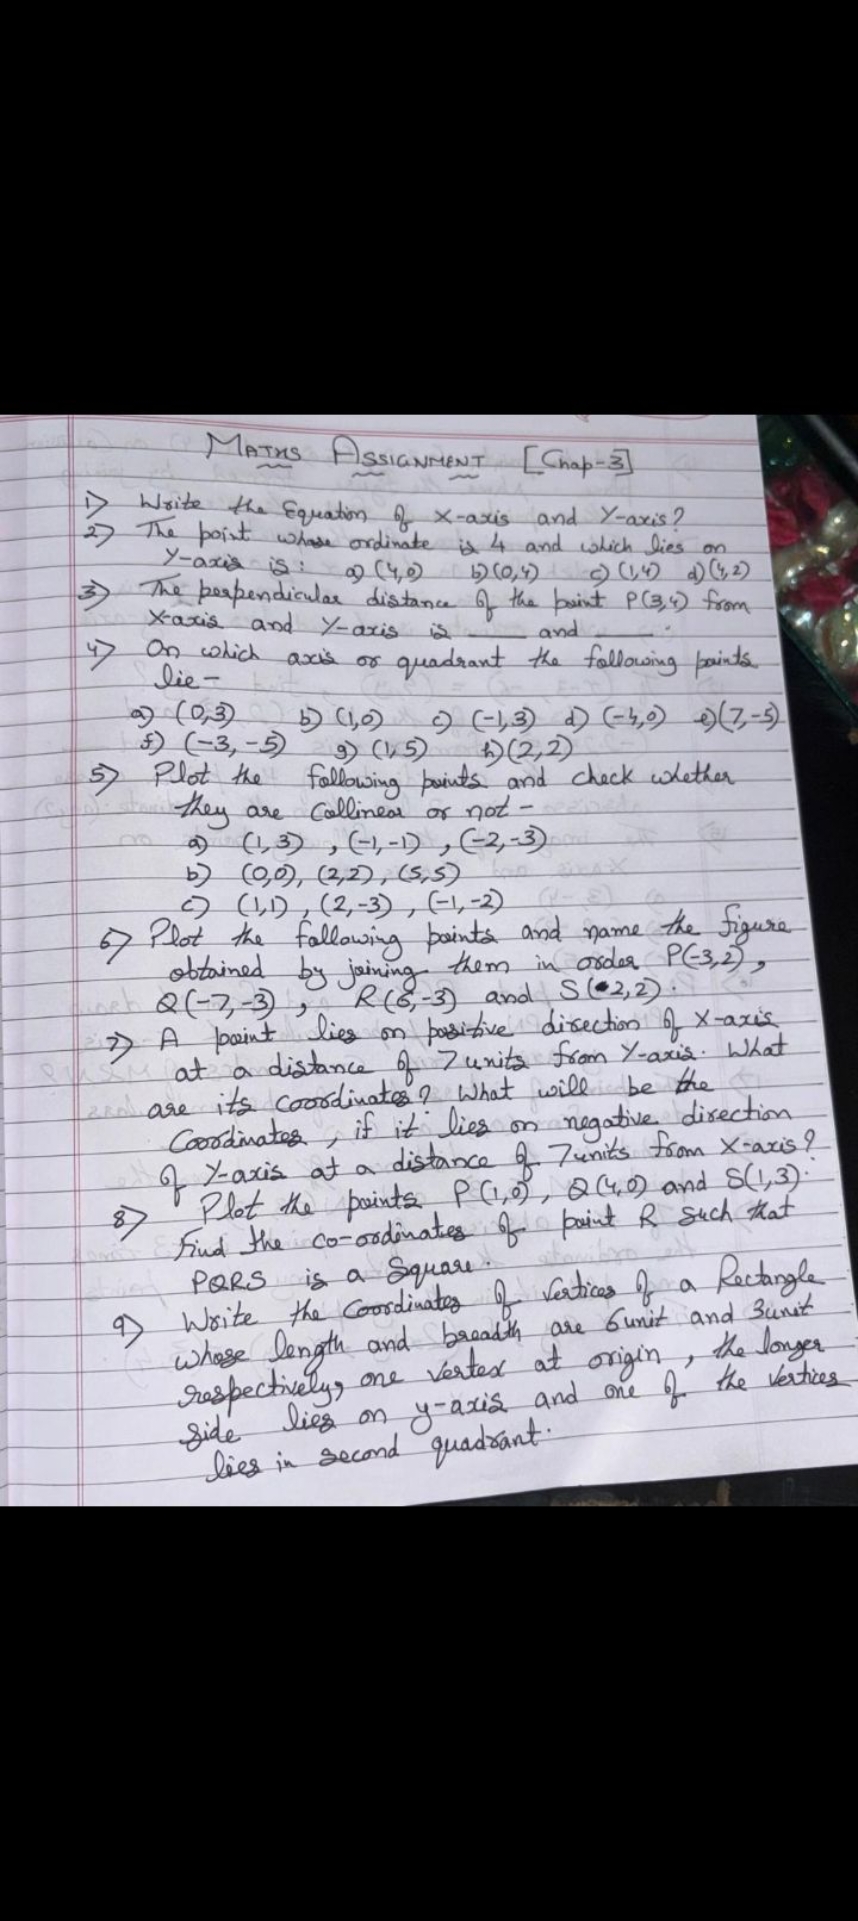 MATHS ASSIGNMENT [Chap-3]
1) Write the Equation of X-axis and Y-axis?
2) The point whose ordinate is 4 and which lies on
Y-axis is: a) (4,0) b) (0,4) c) (1,4) d) (4,2)
3) The perpendicular distance of the point P(3,4) from
X-axis and Y-axis is ___ and ___.
4) On which axis or quadrant the following points
lie-
a) (0,3) b) (1,0) c) (-1,3) d) (-4,0) e) (7,-5)
f) (-3,-5) g) (1,5) h) (2,2)
5) Plot the following points and check whether
they are Collinear or not-
a) (1,3) , (-1,-1) , (-2,-3)
b) (0,0), (2,2), (5,5)
c) (1,1) , (2,-3) , (-1,-2)
6) Plot the following points and name the figure
obtained by joining them in order P(-3,2),
Q(-7,-3) , R(6,-3) and S(2,2).
7) A point lies on positive direction of X-axis
at a distance of 7units from Y-axis. What
are its coordinates? What will be the
Coordinates, if it lies on negative direction
of Y-axis at a distance of 7units from X-axis?
8) Plot the points P(1,0), Q(4,0) and S(1,3).
Find the co-ordinates of point R such that
PQRS is a Square.
9) Write the Coordinates of Vertices of a Rectangle
whose length and breadth are 6unit and 3unit
respectively, one Vertex at origin, the longer
side lies on y-axis and one of the Vertices
lies in second quadrant.